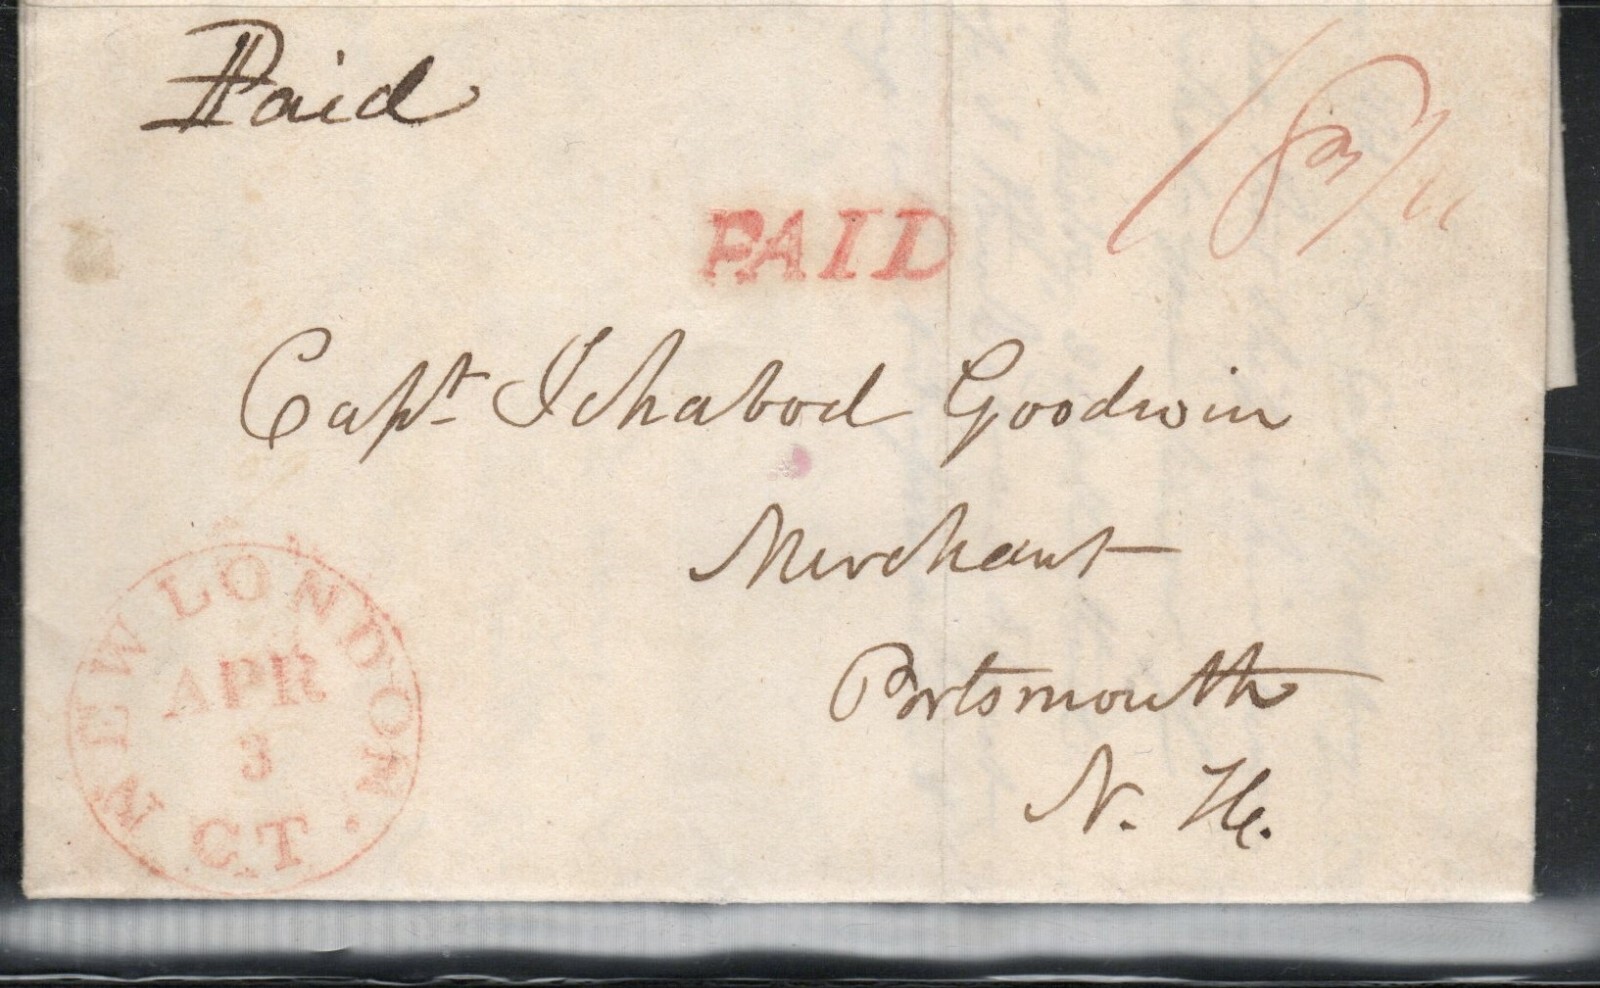 Paid
18 3/4
PAID
Capt. Ichabod Goodwin
Merchant
Portsmouth
N. H.
NEW LONDON
APR
3
C.T.